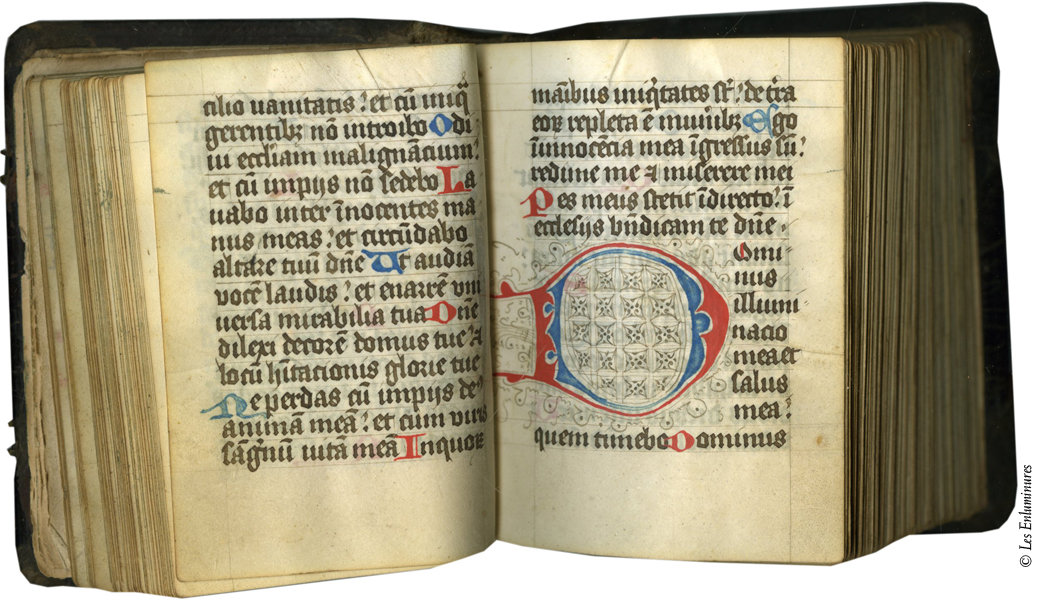 cilio vanitatis? et cū iniq̄
gerentibꝫ nō introibo Odi
ui eccl̄iam malignāciumː
et cū impijs nō sedebo La
uabo inter īnocentes ma
nus meas? et circūdabo
altare tuū dn̄e Ut audiā
vocē laudis? et enarrē vni
uersa mirabilia tua Dn̄e
dilexi decorē domus tue? ⁊
locū hītacionis glorie tue
Ne perdas cū impijs deꝰ
animā meā? et cum viris
sāgnū vitā meā In quoꝝ
manibus iniq̄tates sūt? dextra
eoꝝ repleta ē munibꝫ Ego
ī innocēcia mea īgressus sū?
redime me ⁊ miserere mei
Pes meus stetit ī directo? ī
ecclesijs bn̄dicam te dn̄e ·
Domi-
nus
illumi
nacio
mea et
salus
mea?
quem timebo Dominus
© Les Enluminures